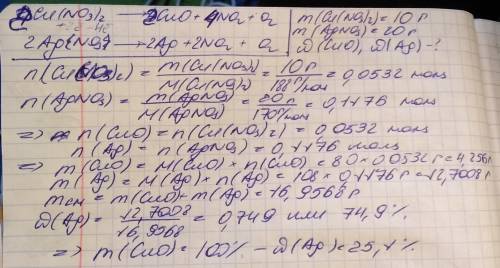 2Cu(NO₃)₂ → 2CuO + 4NO₂ + O₂
2AgNO₃ → 2Ag + 2NO₂ + O₂
m(Cu(NO₃)₂) = 10 г
m(AgNO₃) = 20 г
ω(CuO), ω(Ag) - ?
n(Cu(NO₃)₂) = m(Cu(NO₃)₂) / M(Cu(NO₃)₂) = 10 г / 188 г/моль = 0,0532 моль
n(AgNO₃) = m(AgNO₃) / M(AgNO₃) = 20 г / 170 г/моль = 0,1176 моль
⇒ n(CuO) = n(Cu(NO₃)₂) = 0,0532 моль
n(Ag) = n(AgNO₃) = 0,1176 моль
⇒ m(CuO) = M(CuO) × n(CuO) = 80 × 0,0532 г = 4,256 г
m(Ag) = M(Ag) × n(Ag) = 108 × 0,1176 г = 12,7008 г
mсм = m(CuO) + m(Ag) = 16,9568 г
ω(Ag) = 12,7008 / 16,9568 = 0,749 или 74,9%
⇒ m(CuO) = 100% - ω(Ag) = 25,1%